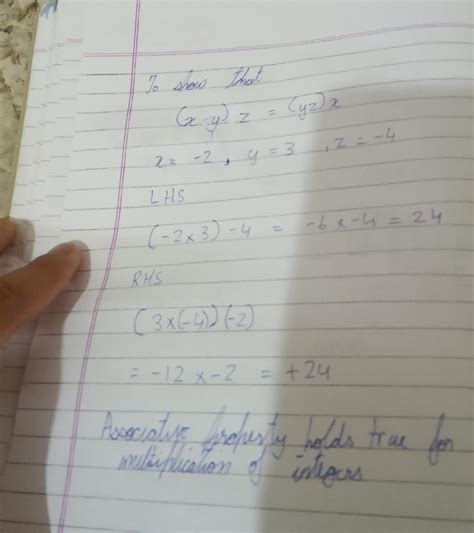 To show that
(x-y) z = (yz)x
x = -2 , y = 3 , z = -4
LHS
(-2×3) -4 = -6 × -4 = 24
RHS
(3×(-4)) (-2)
= -12 × -2 = +24
Associative property holds true for
multiplication of integers